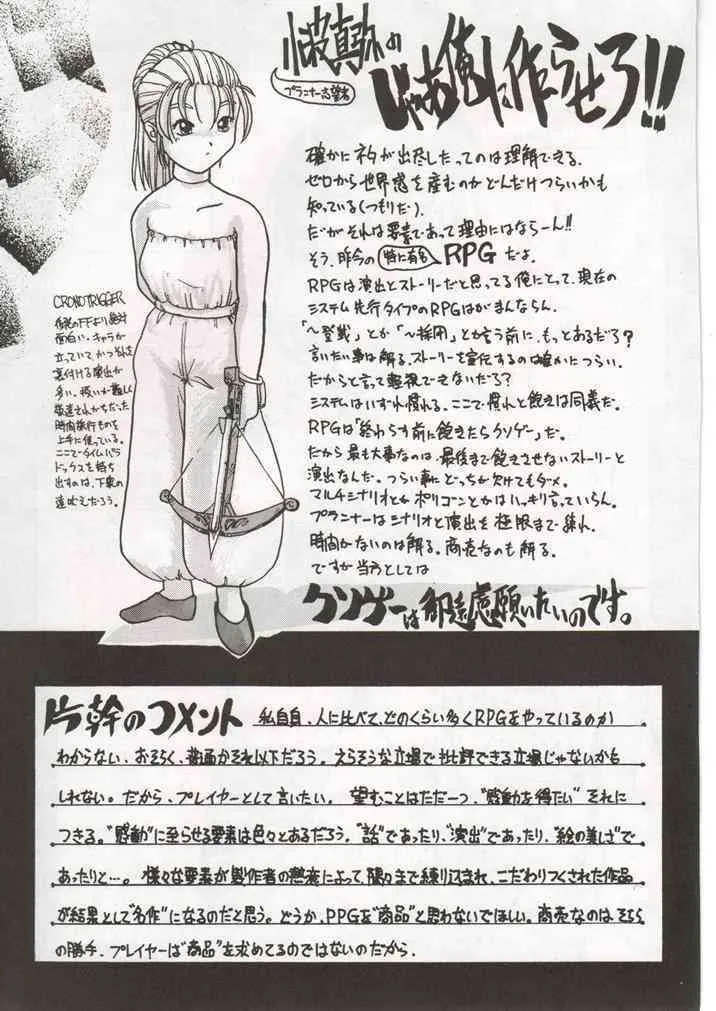 真弥の
じゃあ俺に作らせろ!!
プランナー志望者
確かにネタが出尽したってのは理解できる。
ゼロから世界感を産むのがどんだけつらいかも
知っている(つもりだ)。
だがそれは要素であって理由にはならーん!!
そう、昨今の 特に有名 RPG だよ。
RPGは演出とストーリーだと思ってる俺にとって、現在の
システム先行タイプのRPGはがまんならん。
「〜登載」とか「〜採用」とか言う前に、もっとあるだろ?
言いたい事は解る。ストーリーを宣伝するのは確かにつらい。
だからと言って軽視できないだろ?
システムはいずれ慣れる。ここで慣れと飽きは同義だ。
RPGは「終わらす前に飽きたらクソゲー」だ。
だから最も大事なのは、最後まで飽きさせないストーリーと
演出なんだ。つらい事にどっちが欠けてもダメ。
マルチシナリオとかポリゴンとかはハッキリ言っていらん。
プランナーはシナリオと演出を極限まで練れ。
時間がないのは解る。商売なのも解る。
ですが当方としては
クソゲーは御遠慮願いたいのです。
CRONOTRIGGER
のFFより絶対
面白い。キャラが
立っていてかつ
裏付ける演出が
多い。扱いが難しく
敬遠されがちだった
時間旅行ものを
上手に使っている。
ここでタイムパラ
ドックスを持ち
出すのは、下衆の
遠吠えだろう。
片幹のコメント
私自身、人に比べて、どのくらい多くRPGをやっているのか
わからない。おそらく、普通かそれ以下だろう。えらそうな立場で批評できる立場じゃないかも
しれない。だから、プレイヤーとして言いたい。望むことはただ一つ、"感動を得たい"それに
つきる。"感動"に至らせる要素は色々とあるだろう。"話"であったり、"演出"であったり、"絵の美しさ"で
あったりと…。様々な要素が製作者の熱意によって、隅々まで練り込まれ、こだわりつくされた作品
が結果として"名作"になるのだと思う。どうか、PPGを"商品"と思わないでほしい。商売なのはそちら
の勝手、プレイヤーは"商品"を求めてるのではないのだから。